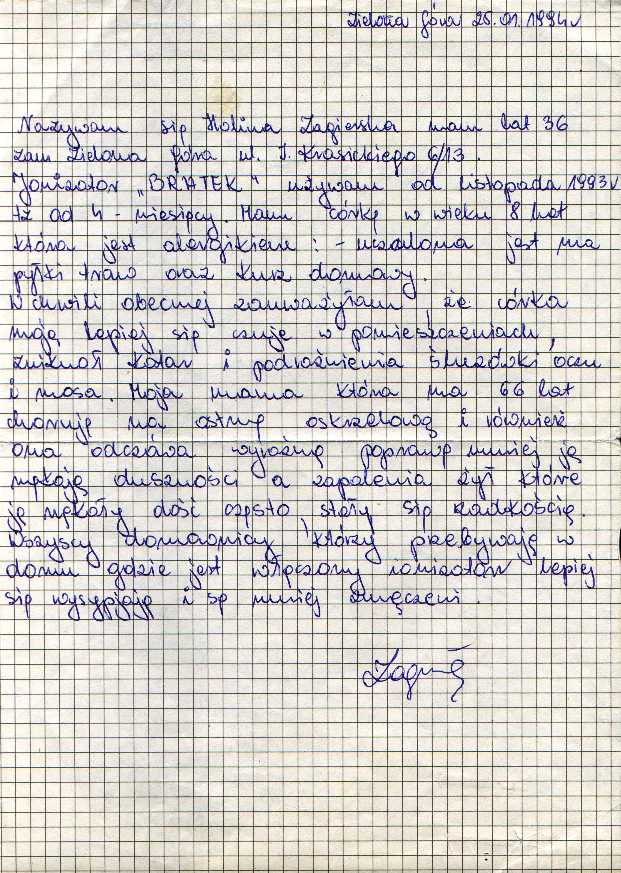 Zielona Góra 25.01.1994r
Nazywam się Halina Zagierska mam lat 36
zam Zielona Góra ul. I. Krasickiego 6/13.
Jonizator „BRATEK" używam od listopada 1993r
tz od 4-miesięcy. Mam córkę w wieku 8 lat
która jest alergikiem: - uczulona jest na
pyłki traw oraz kurz domowy.
W chwili obecnej zauważyłam, że córka
moja lepiej się czuje w pomieszczeniach,
zniknoł katar i podrażnienia śluzówki oczu
i nosa. Moja mama która ma 66 lat
choruje na astmę oskrzelową i również
ona odczuwa wyraźną poprawę mniej ją
nękają duszności a zapalenia żył które
ją nękały dość często stały się rzadkością.
Wszyscy domownicy, którzy przebywają w
domu gdzie jest włączony jonizator lepiej
się wysypiają i są mniej zmęczeni.